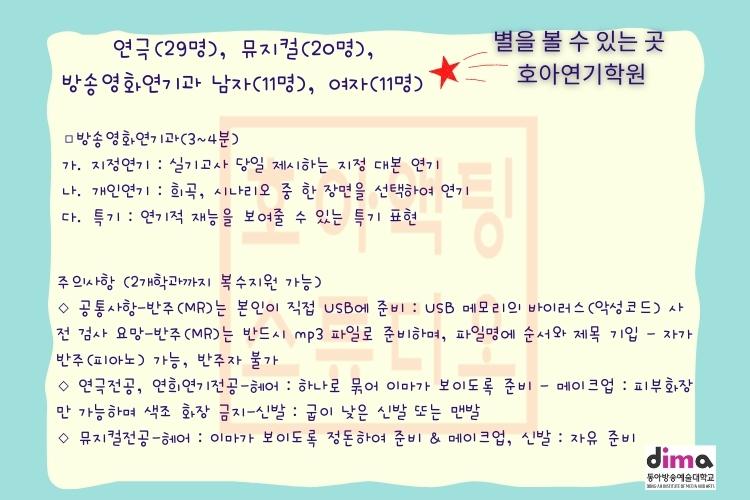 연극(29명), 뮤지컬(20명),
방송영화연기과 남자(11명), 여자(11명)
별을 볼 수 있는 곳
호아연기학원
□방송영화연기과(3~4분)
가. 지정연기 : 실기고사 당일 제시하는 지정 대본 연기
나. 개인연기 : 희곡, 시나리오 중 한 장면을 선택하여 연기
다. 특기 : 연기적 재능을 보여줄 수 있는 특기 표현
주의사항 (2개학과까지 복수지원 가능)
◇ 공통사항-반주(MR)는 본인이 직접 USB에 준비 : USB 메모리의 바이러스(악성코드) 사
전 검사 요망-반주(MR)는 반드시 mp3 파일로 준비하며, 파일명에 순서와 제목 기입 - 자가
반주(피아노) 가능, 반주자 불가
◇ 연극전공, 연희연기전공-헤어 : 하나로 묶어 이마가 보이도록 준비 - 메이크업 : 피부화장
만 가능하며 색조 화장 금지-신발 : 굽이 낮은 신발 또는 맨발
◇ 뮤지컬전공-헤어 : 이마가 보이도록 정돈하여 준비 & 메이크업, 신발 : 자유 준비
호아액팅
스튜디오
dima
동아방송예술대학교
DONG-AH INSTITUTE OF MEDIA AND ARTS